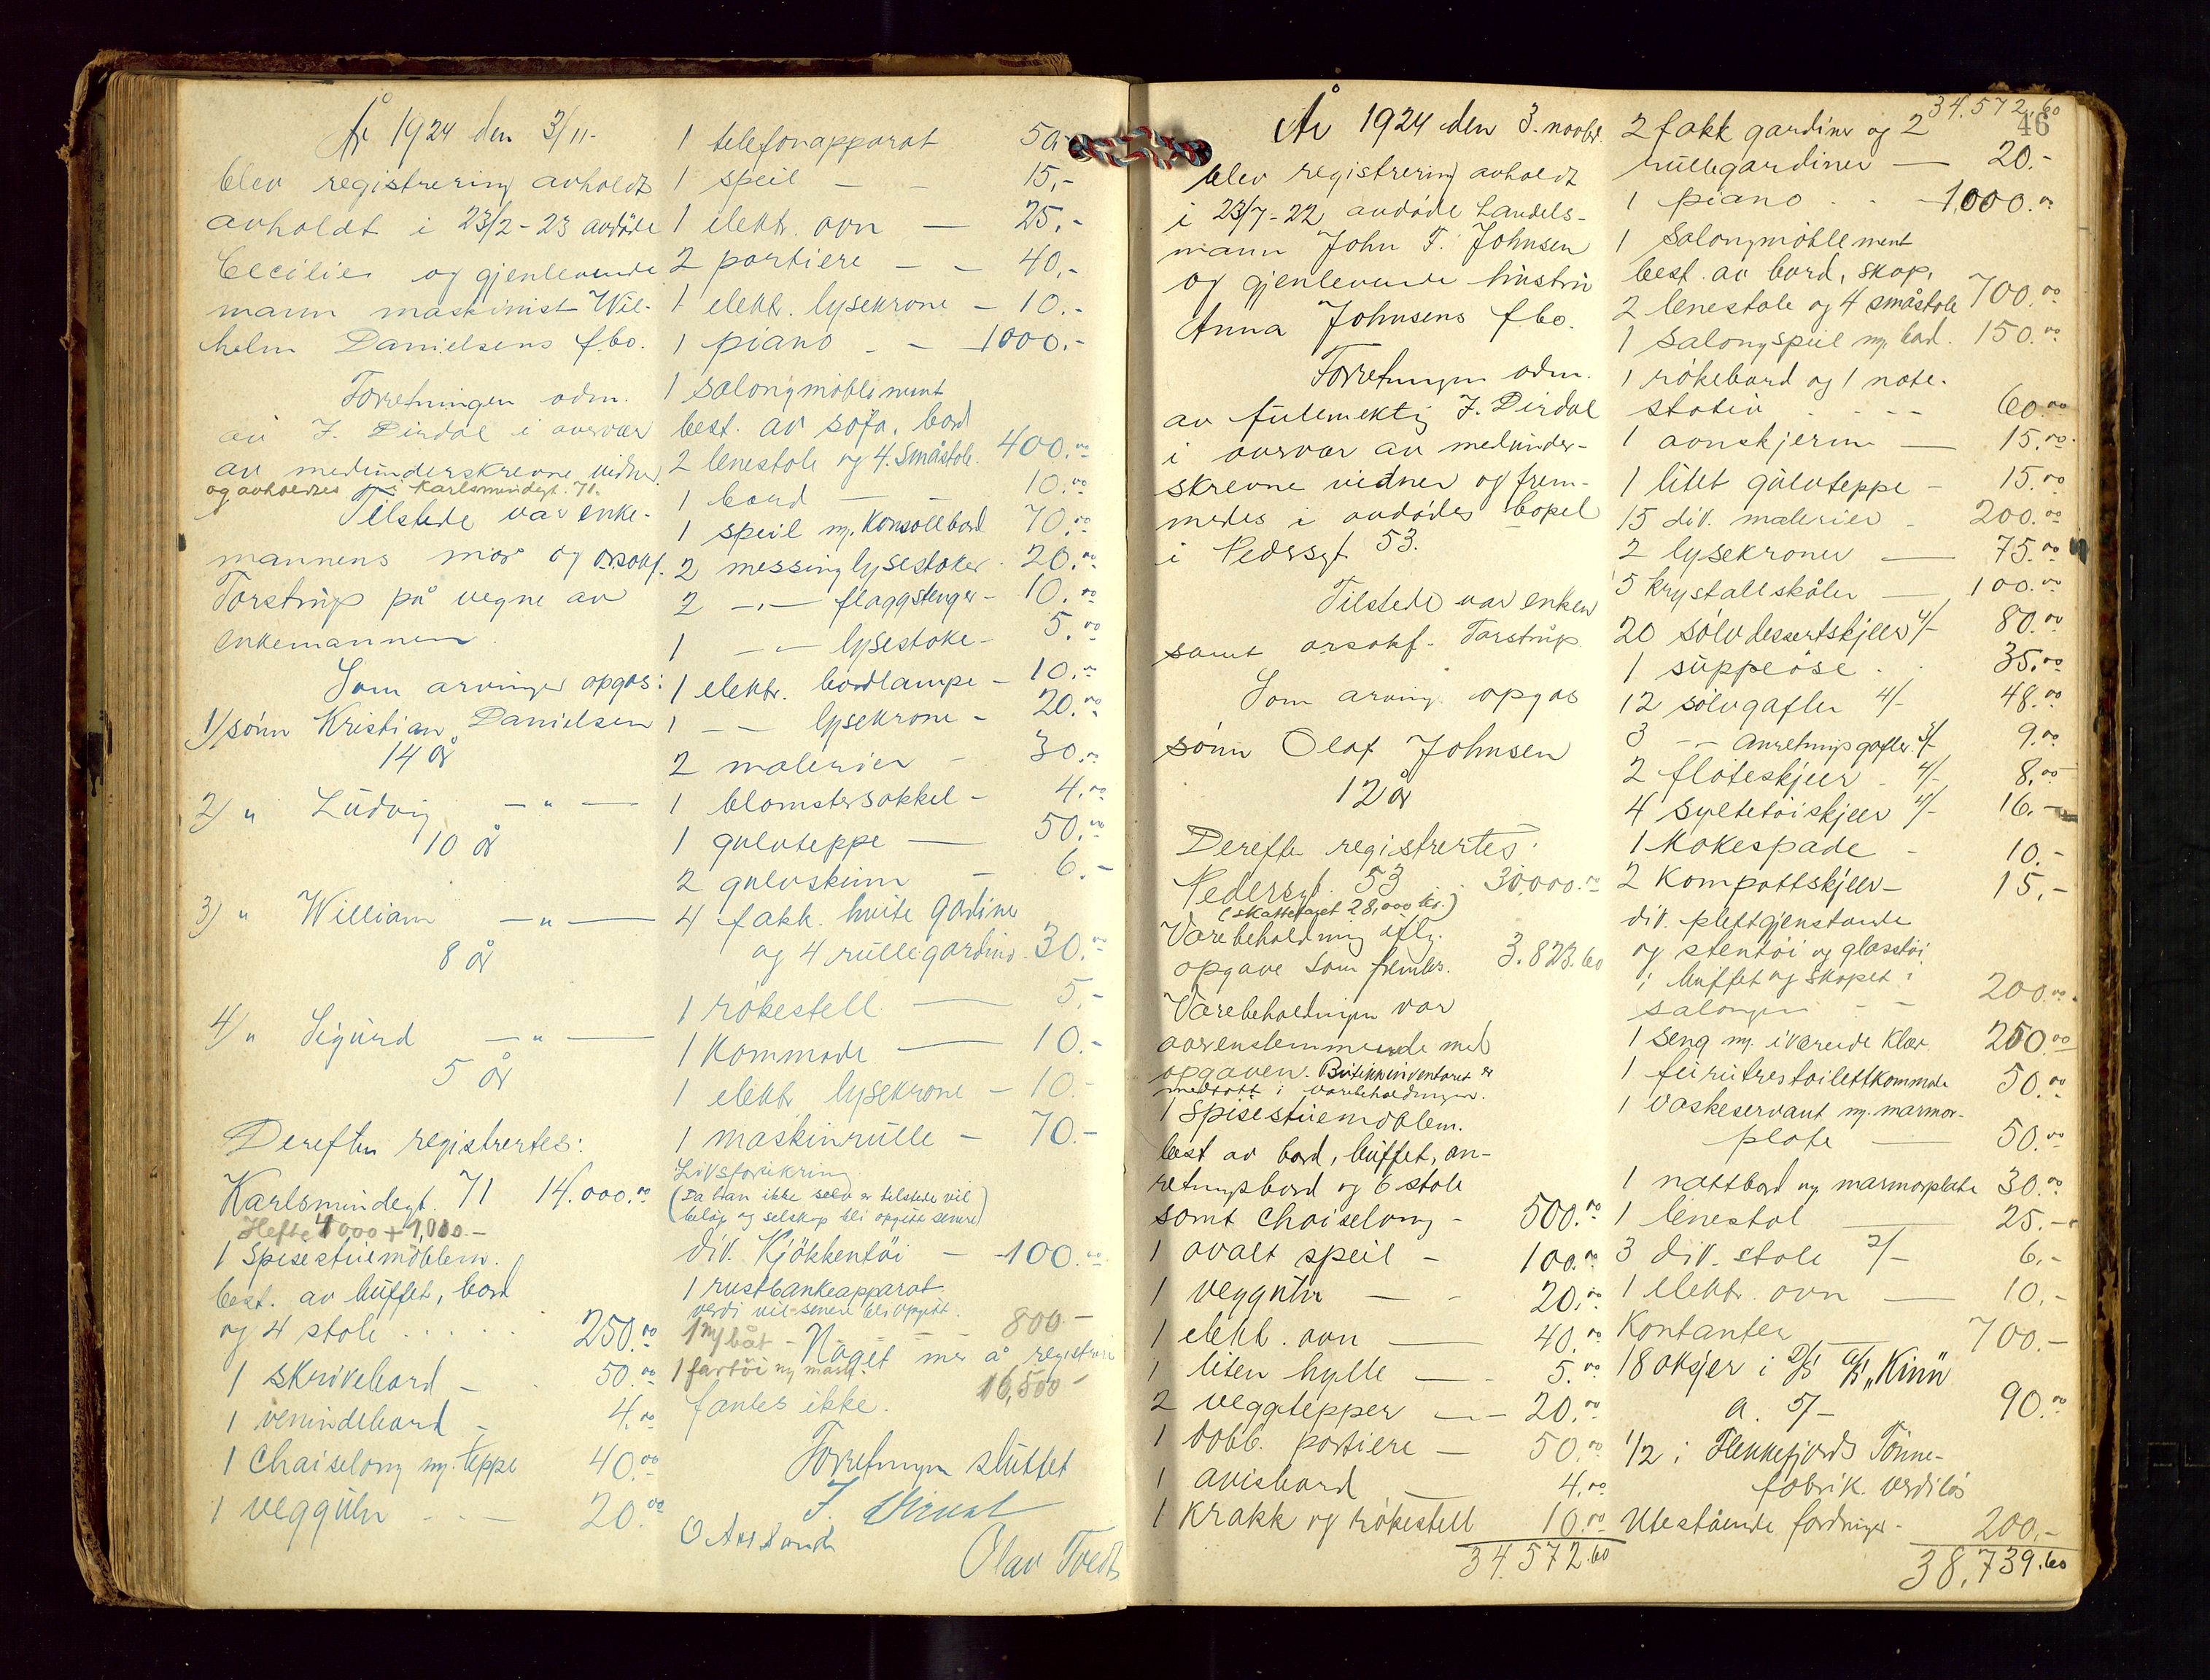 År 1924 den 3/11-
blev registrering avholdt
avholdt i 23/2-23 avdöde
Cecilie og gjenlevende
mann maskinist Wil-
helm Danielsens f.bo.
Forretningen adm.
av F. Dirdal i overvær
av medunderskrevne vidner
og avholdtes i Karlsmindegt. 71.
Tilstede var enke-
mannens mor og orsakf.
Torstrup på vegne av
enkemannen.
Som arvinger opgas:
1) sönn Kristian Danielsen
14 år
2) " Ludvig — " —
10 år
3) " William — " —
8 år
4) " Sigurd — " —
5 år
Derefter registrertes:
Karlsmindegt. 71 14.000.00
Hefte 4000 + 1,000.-
1 Spisestuemöblem.
best. av buffet, bord
og 4 stole . . . . . 250.00
1 skrivebord - . 50.00
1 venindebord - 4.00
1 Chaiselong m. teppe 40.00
1 veggúhr . . — 20.00
1 telefonapparat 50.-
1 speil — - 15,-
1 elektr. ovn — 25.-
2 portiere — - 40,-
1 elektr. lysekrone — 10.-
1 piano . - 1000.-
1 salongmöblement
best. av sofa, bord
2 lenestole og 4. småstole. 400.00
1 bord — - 10.00
1 speil m. Konsollbord 70.00
2 messinglysestaker . 20.00
2 -"- flaggstenger - 10.00
1 -"- lysestake - 5.00
1 elektr. bordlampe - 10.00
1 - - lysekrone - 20.00
2 malerier - 30.00
1 blomstersokkel - 4.00
1 gulvteppe — 50.00
2 gulvskinn - 6.-
4 fakk. hvite gardiner
og 4 rullegardiner. 30.-
1 rökestell — 5.-
1 Kommode — 10.-
1 elektr. lysekrone - 10.-
1 maskinrulle - 70.-
Livsforsikring
(Da han ikke selv er tilstede vil
belöp og selskap bli opgitt senere)
div. Kjökkentöi - 100.00
1 rustbankeapparat
verdi vil senere bli opgitt.
1 m/ båt - 800 -
Noget mer å registrere
1 fartöi m. mask. 16,500 -
fantes ikke.
Forretningen sluttet
F. Dirdal
O Aasland
Olav Tvedt
46
År 1924 den 3. novbr.
blev registrering avholdt
i 23/7-22 avdöde Handels-
mann John F. Johnsen
og gjenlevende hustru
Anna Johnsens fbo.
Forretningen adm.
av fullmektig F. Dirdal
i overvær av medunder-
skrevne vidner og frem-
medes i avdödes bopel
i Pedersgt 53.
Tilstede var enken
samt orsakf. Torstrup
Som arving opgas
sönn Olaf Johnsen
12 år
Derefter registrertes:
Pedersgt. 53 . 30,000.00
(skattetaget 28,000 kr.)
Varebeholdning iflg.
opgave som fremles. 3.823.60
Varebeholdningen var
overenstemmende med
opgaven. Butikkinventaret er
medtatt i varebeholdningen.
1 Spisestuemöblem.
best av bord, buffet, an-
retningsbord og 6 stole
samt chaiselong - 500.00
1 ovalt speil - 100.00
1 veggúhr — - 20.00
1 elekt. ovn — 40.00
1 liten hylle — - 5.00
2 veggtepper — - 20.00
1 dobb. portiere — 50.00
1 avisbord — 4.00
1 Krakk og rökestell 10.00
34.572.60
34.572.60
2 fakk gardiner og 2
rullegardiner — 20.-
1 piano . . - 1000.00
1 Salongmöblement
best. av bord, skap,
2 lenestole og 4 småstole 700.00
1 Salongspeil m. bord. 150.00
1 rökebord og 1 note-
stativ . - - - 60.00
1 ovnskjerm — 15.00
1 litet gulvteppe - 15.00
15 div. malerier - 200.00
2 lysekroner — 75.00
5 krystallskåler — 100.00
20 sölvdessertskjeer 4/- 80.00
1 suppeöse . . 35.00
12 sölvgafler 4/- 48.00
3 -"- Anretningsgafler. 3/- 9.00
2 flöteskjeer - 4/- 8.00
4 Syltetöiskjeer 4/- 16.-
1 Kakespade - 10.-
2 Kompottskjeer - 15,-
div. plettgjenstande
og stentöi og glasstöi
i buffet og skapet i
salongen - - 200.00
1 seng m. iværende klær 250.00
1 furutrestoilettkommode 50.00
1 vaskeservant m. marmor-
plate — 50.00
1 nattbord m. marmorplate 30.00
1 lenestol — 25.-
3 div. stole 2/- 6.-
1 elektr. ovn — 10.-
Kontanter — 700.-
18 aksjer i D/S A/S "Kinn"
a. 5/- 90.00
1/2 i Flekkefjords Tönne-
fabrik. verdilös
Utestående fordringer - 200.-
38,739.60